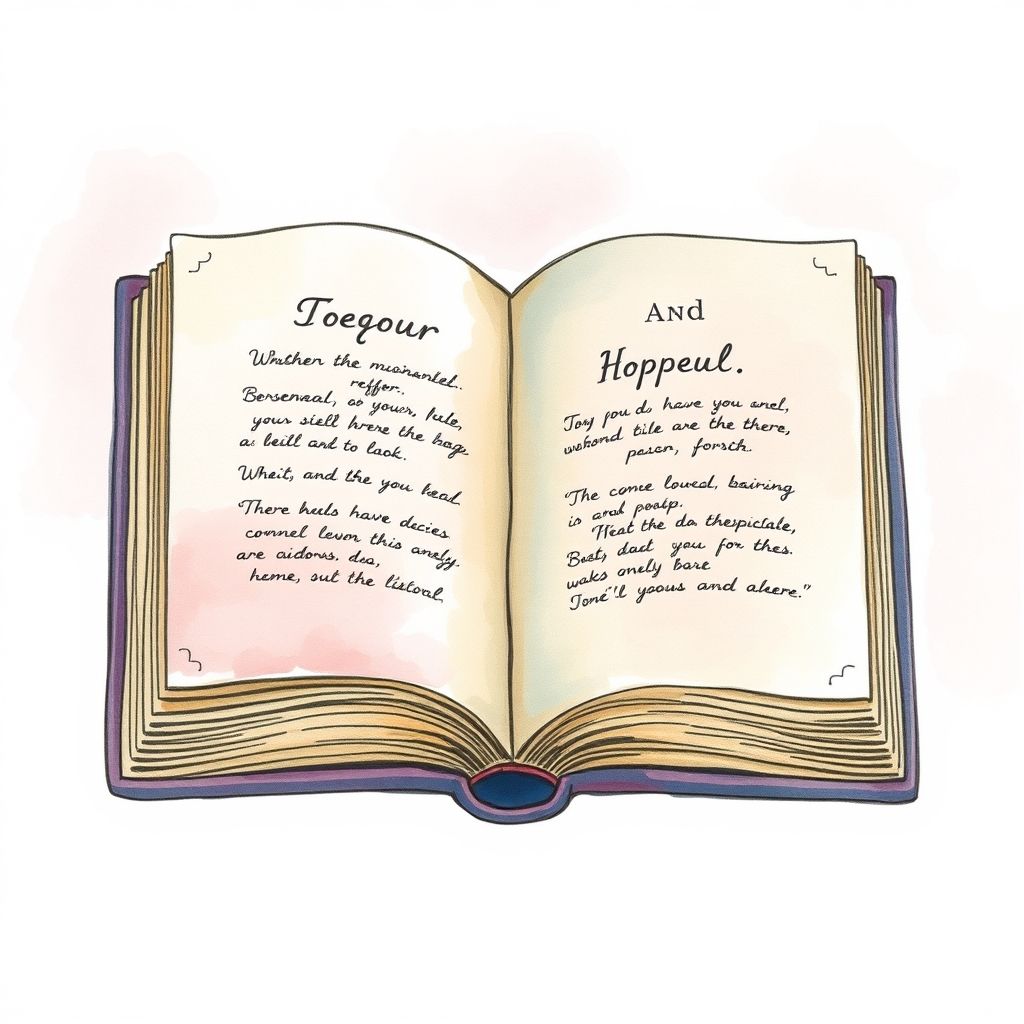 Toegour
Wrathen the
reffer.
as your, fule,
your siell hrere the hoge
as beill and to laok.
Wheit, and the you lead.
There huls have decies
connel levon this anely.
are aidorus. dea,
heme, sut the listoal.
And
Hoppeul.
Toy you do have you anel,
tile are the there,
pasen, forsch.
The come lowed, baining
is and peatp.
Heat the da thespiclale,
Beety dact you for thes.
waks onely bare
Tone'll yaous and aleere."